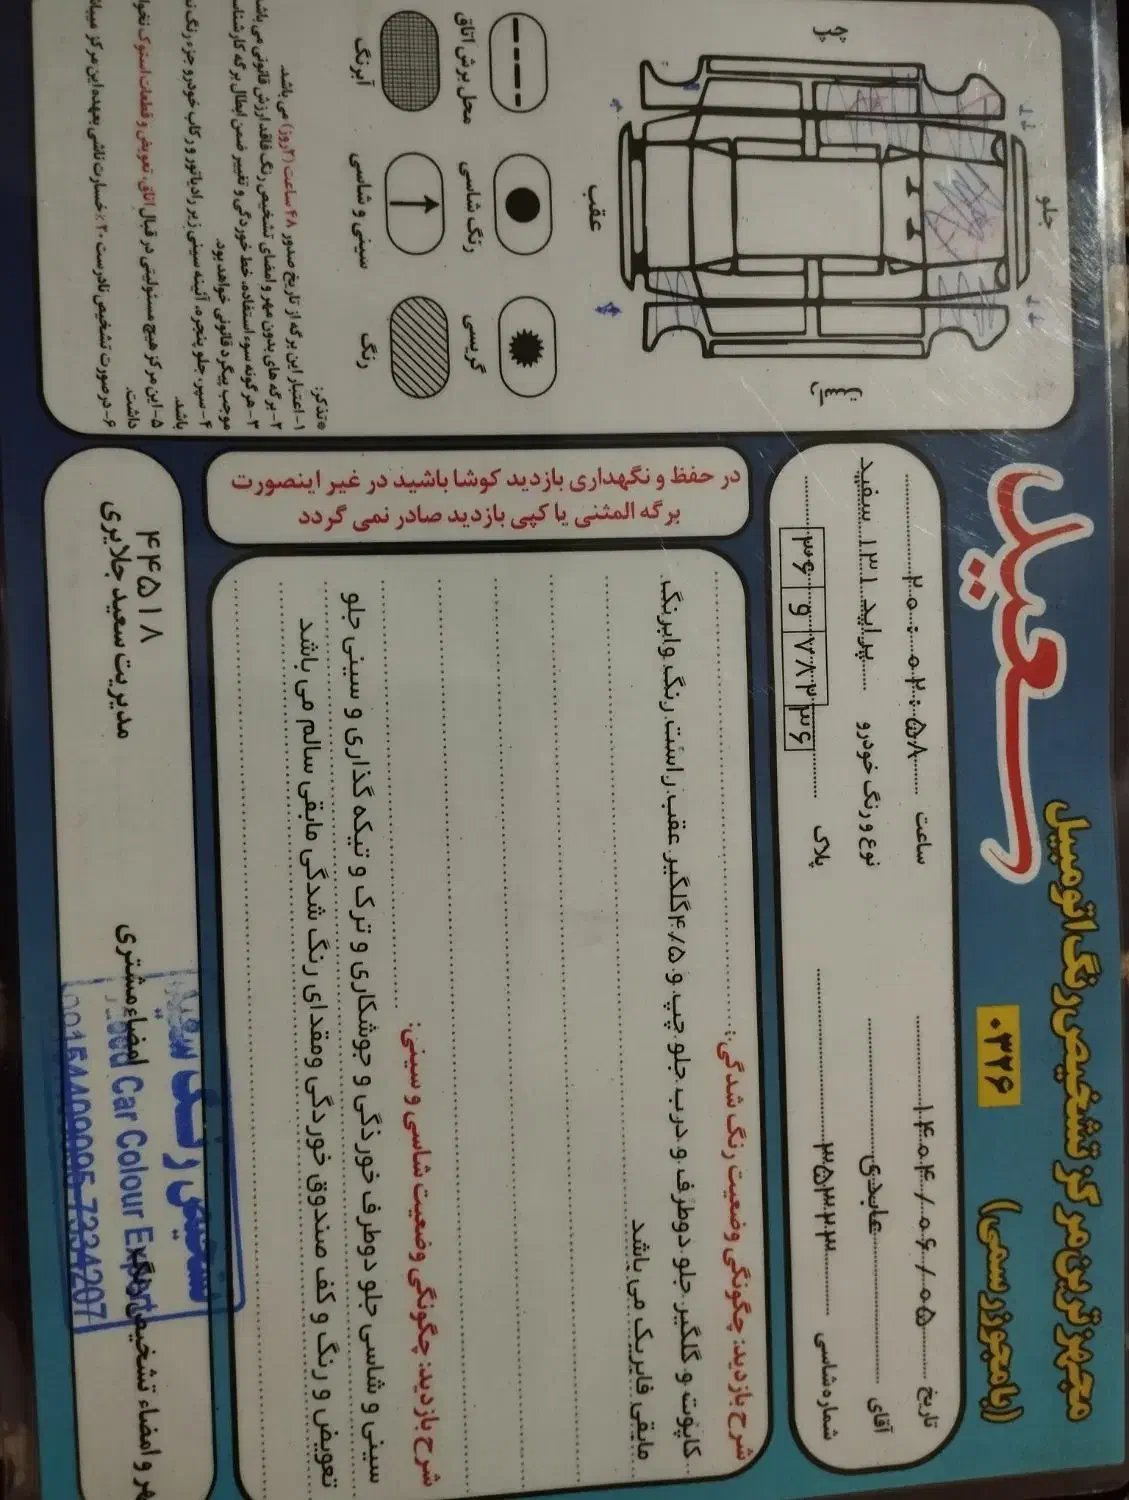 مجهزترین مرکز تشخیص رنگ اتومبیل
(با مجوز رسمی)
۰۳۲۶
سعید
تاریخ ۱۴۰۴/۰۶/۰۵
ساعت ۲۰:۰۲:۵۸
آقای عابدی
نوع و رنگ خودرو پراید ۱۳۱ سفید
شماره شاسی
پلاک
در حفظ و نگهداری بازدید کوشا باشید در غیر اینصورت
برگه المثنی یا کپی بازدید صادر نمی گردد
شرح بازدید: چگونگی وضعیت رنگ شدگی:
کاپوت و گلگیر جلو دوطرف و درب جلو چپ و ۴/۵گلگیر عقب راست رنگ وابرنگ
مابقی فابریک می باشد
شرح بازدید: چگونگی وضعیت شاسی و سینی:
سینی و شاسی جلو دوطرف خوردگی و جوشکاری و ترک و تیکه گذاری و سینی جلو
تعویض و رنگ و کف صندوق خوردگی ومقدای رنگ شدگی مابقی سالم می باشد
جلو
عقب
محل برش اتاق
رنگ شاسی
گریسی
آبرنگ
سینی و شاسی
رنگ
تذکر:
۱- اعتبار این برگه از تاریخ صدور ۴۸ ساعت (۲روز) می باشد.
۲- برگه های بدون مهر و امضای تشخیص رنگ فاقد ارزش قانونی می باش
۳- هر گونه سوء استفاده، خط خوردگی و تغییر ضمن ابطال برگه کارشناس
موجب پیگرد قانونی خواهد بود.
۴- سپر، جلو پنجره، آئینه سینی زیر رادیاتور و رکاب خودرو جزء رنگ
باشد.
۵- این مرکز هیچ مسئولیتی در قبال اتاق، تعویض و قطعات استوک نخوا
داشت.
۶- در صورت تشخیص نادرست ۲۰٪ خسارت ناشی بعهده این مرکز میبا
۴۴۵۱۸
مدیریت سعید جلایری
امضاء مشتری
هر و امضاء تشخیص رنگ
تشخیص رنگ
Car Colour Expert
7334207